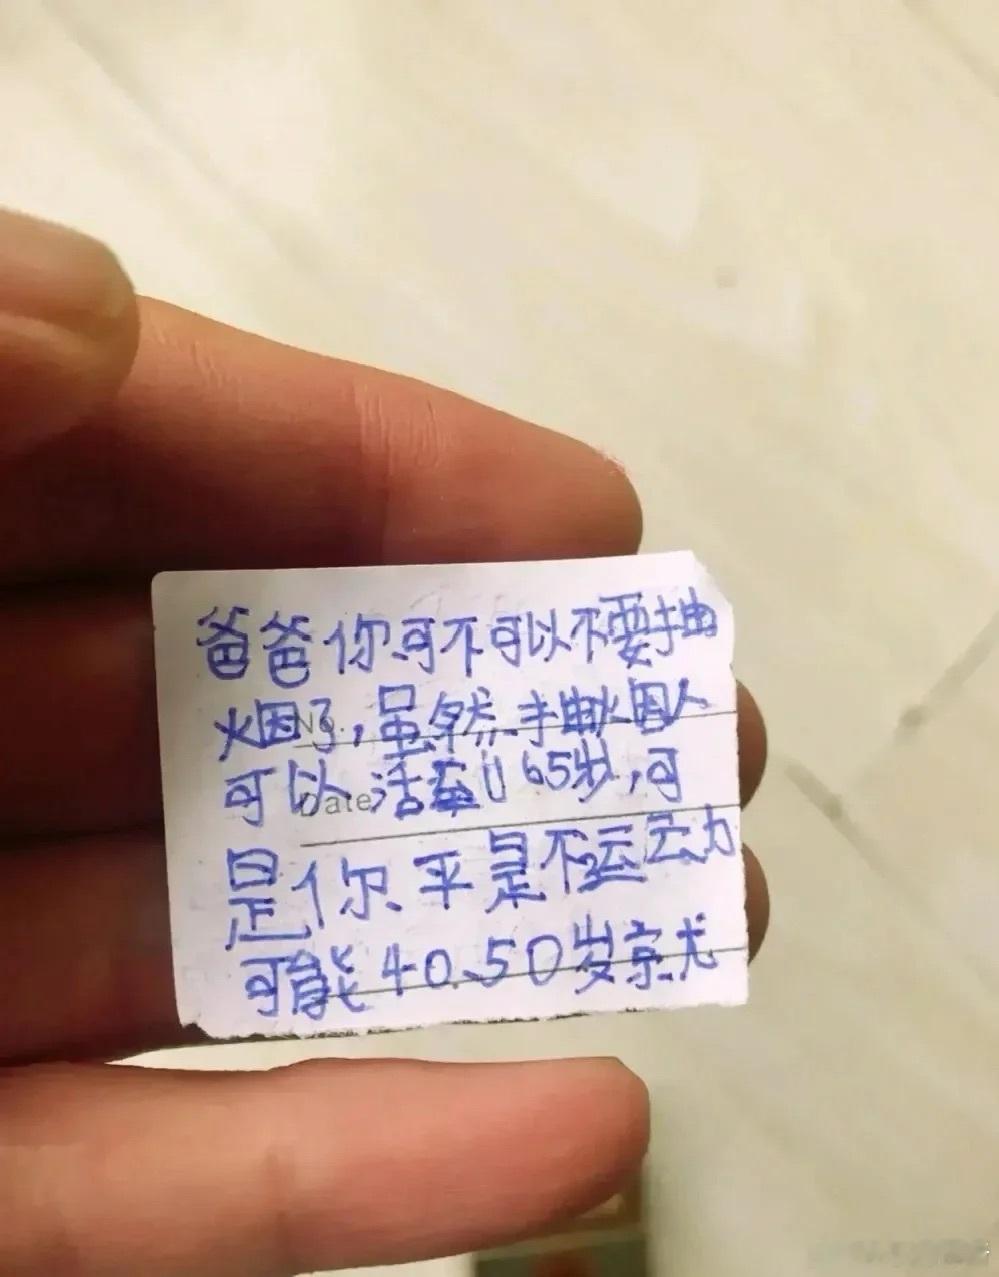 爸爸你可不可以不要抽
烟了,虽然抽烟人
No.
可以活到65岁,可
Date
是你平是不运动
可能40.50岁京尤